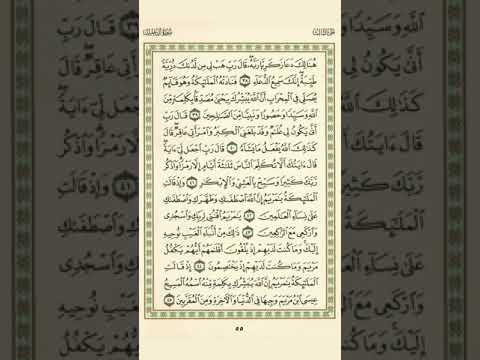 الجزء الثالث
سورة آل عمران
هُنَالِكَ دَعَا زَكَرِيَّا رَبَّهُۥ قَالَ رَبِّ هَبْ لِي مِن لَّدُنكَ ذُرِّيَّةً
طَيِّبَةً إِنَّكَ سَمِيعُ ٱلدُّعَآءِ ٣٨ فَنَادَتْهُ ٱلْمَلَٰٓئِكَةُ وَهُوَ قَآئِمٌ
يُصَلِّي فِي ٱلْمِحْرَابِ أَنَّ ٱللَّهَ يُبَشِّرُكَ بِيَحْيَىٰ مُصَدِّقًۢا بِكَلِمَةٍ مِّنَ
ٱللَّهِ وَسَيِّدًا وَحَصُورًا وَنَبِيًّا مِّنَ ٱلصَّٰلِحِينَ ٣٩ قَالَ رَبِّ
أَنَّىٰ يَكُونُ لِي غُلَٰمٌ وَقَدْ بَلَغَنِيَ ٱلْكِبَرُ وَٱمْرَأَتِي عَاقِرٌ قَالَ
كَذَٰلِكَ ٱللَّهُ يَفْعَلُ مَا يَشَآءُ ٤٠ قَالَ رَبِّ ٱجْعَل لِّيٓ ءَايَةً
قَالَ ءَايَتُكَ أَلَّا تُكَلِّمَ ٱلنَّاسَ ثَلَٰثَةَ أَيَّامٍ إِلَّا رَمْزًا وَٱذْكُر
رَّبَّكَ كَثِيرًا وَسَبِّحْ بِٱلْعَشِيِّ وَٱلْإِبْكَٰرِ ٤١ وَإِذْ قَالَتِ
ٱلْمَلَٰٓئِكَةُ يَٰمَرْيَمُ إِنَّ ٱللَّهَ ٱصْطَفَىٰكِ وَطَهَّرَكِ وَٱصْطَفَىٰكِ
عَلَىٰ نِسَآءِ ٱلْعَٰلَمِينَ ٤٢ يَٰمَرْيَمُ ٱقْنُتِي لِرَبِّكِ وَٱسْجُدِي
وَٱرْكَعِي مَعَ ٱلرَّٰكِعِينَ ٤٣ ذَٰلِكَ مِنْ أَنۢبَآءِ ٱلْغَيْبِ نُوحِيهِ
إِلَيْكَ وَمَا كُنتَ لَدَيْهِمْ إِذْ يُلْقُونَ أَقْلَٰمَهُمْ أَيُّهُمْ يَكْفُلُ
مَرْيَمَ وَمَا كُنتَ لَدَيْهِمْ إِذْ يَخْتَصِمُونَ ٤٤ إِذْ قَالَتِ
ٱلْمَلَٰٓئِكَةُ يَٰمَرْيَمُ إِنَّ ٱللَّهَ يُبَشِّرُكِ بِكَلِمَةٍ مِّنْهُ ٱسْمُهُ ٱلْمَسِيحُ
عِيسَى ٱبْنُ مَرْيَمَ وَجِيهًا فِي ٱلدُّنْيَا وَٱلْءَاخِرَةِ وَمِنَ ٱلْمُقَرَّبِينَ ٤٥
٥٥